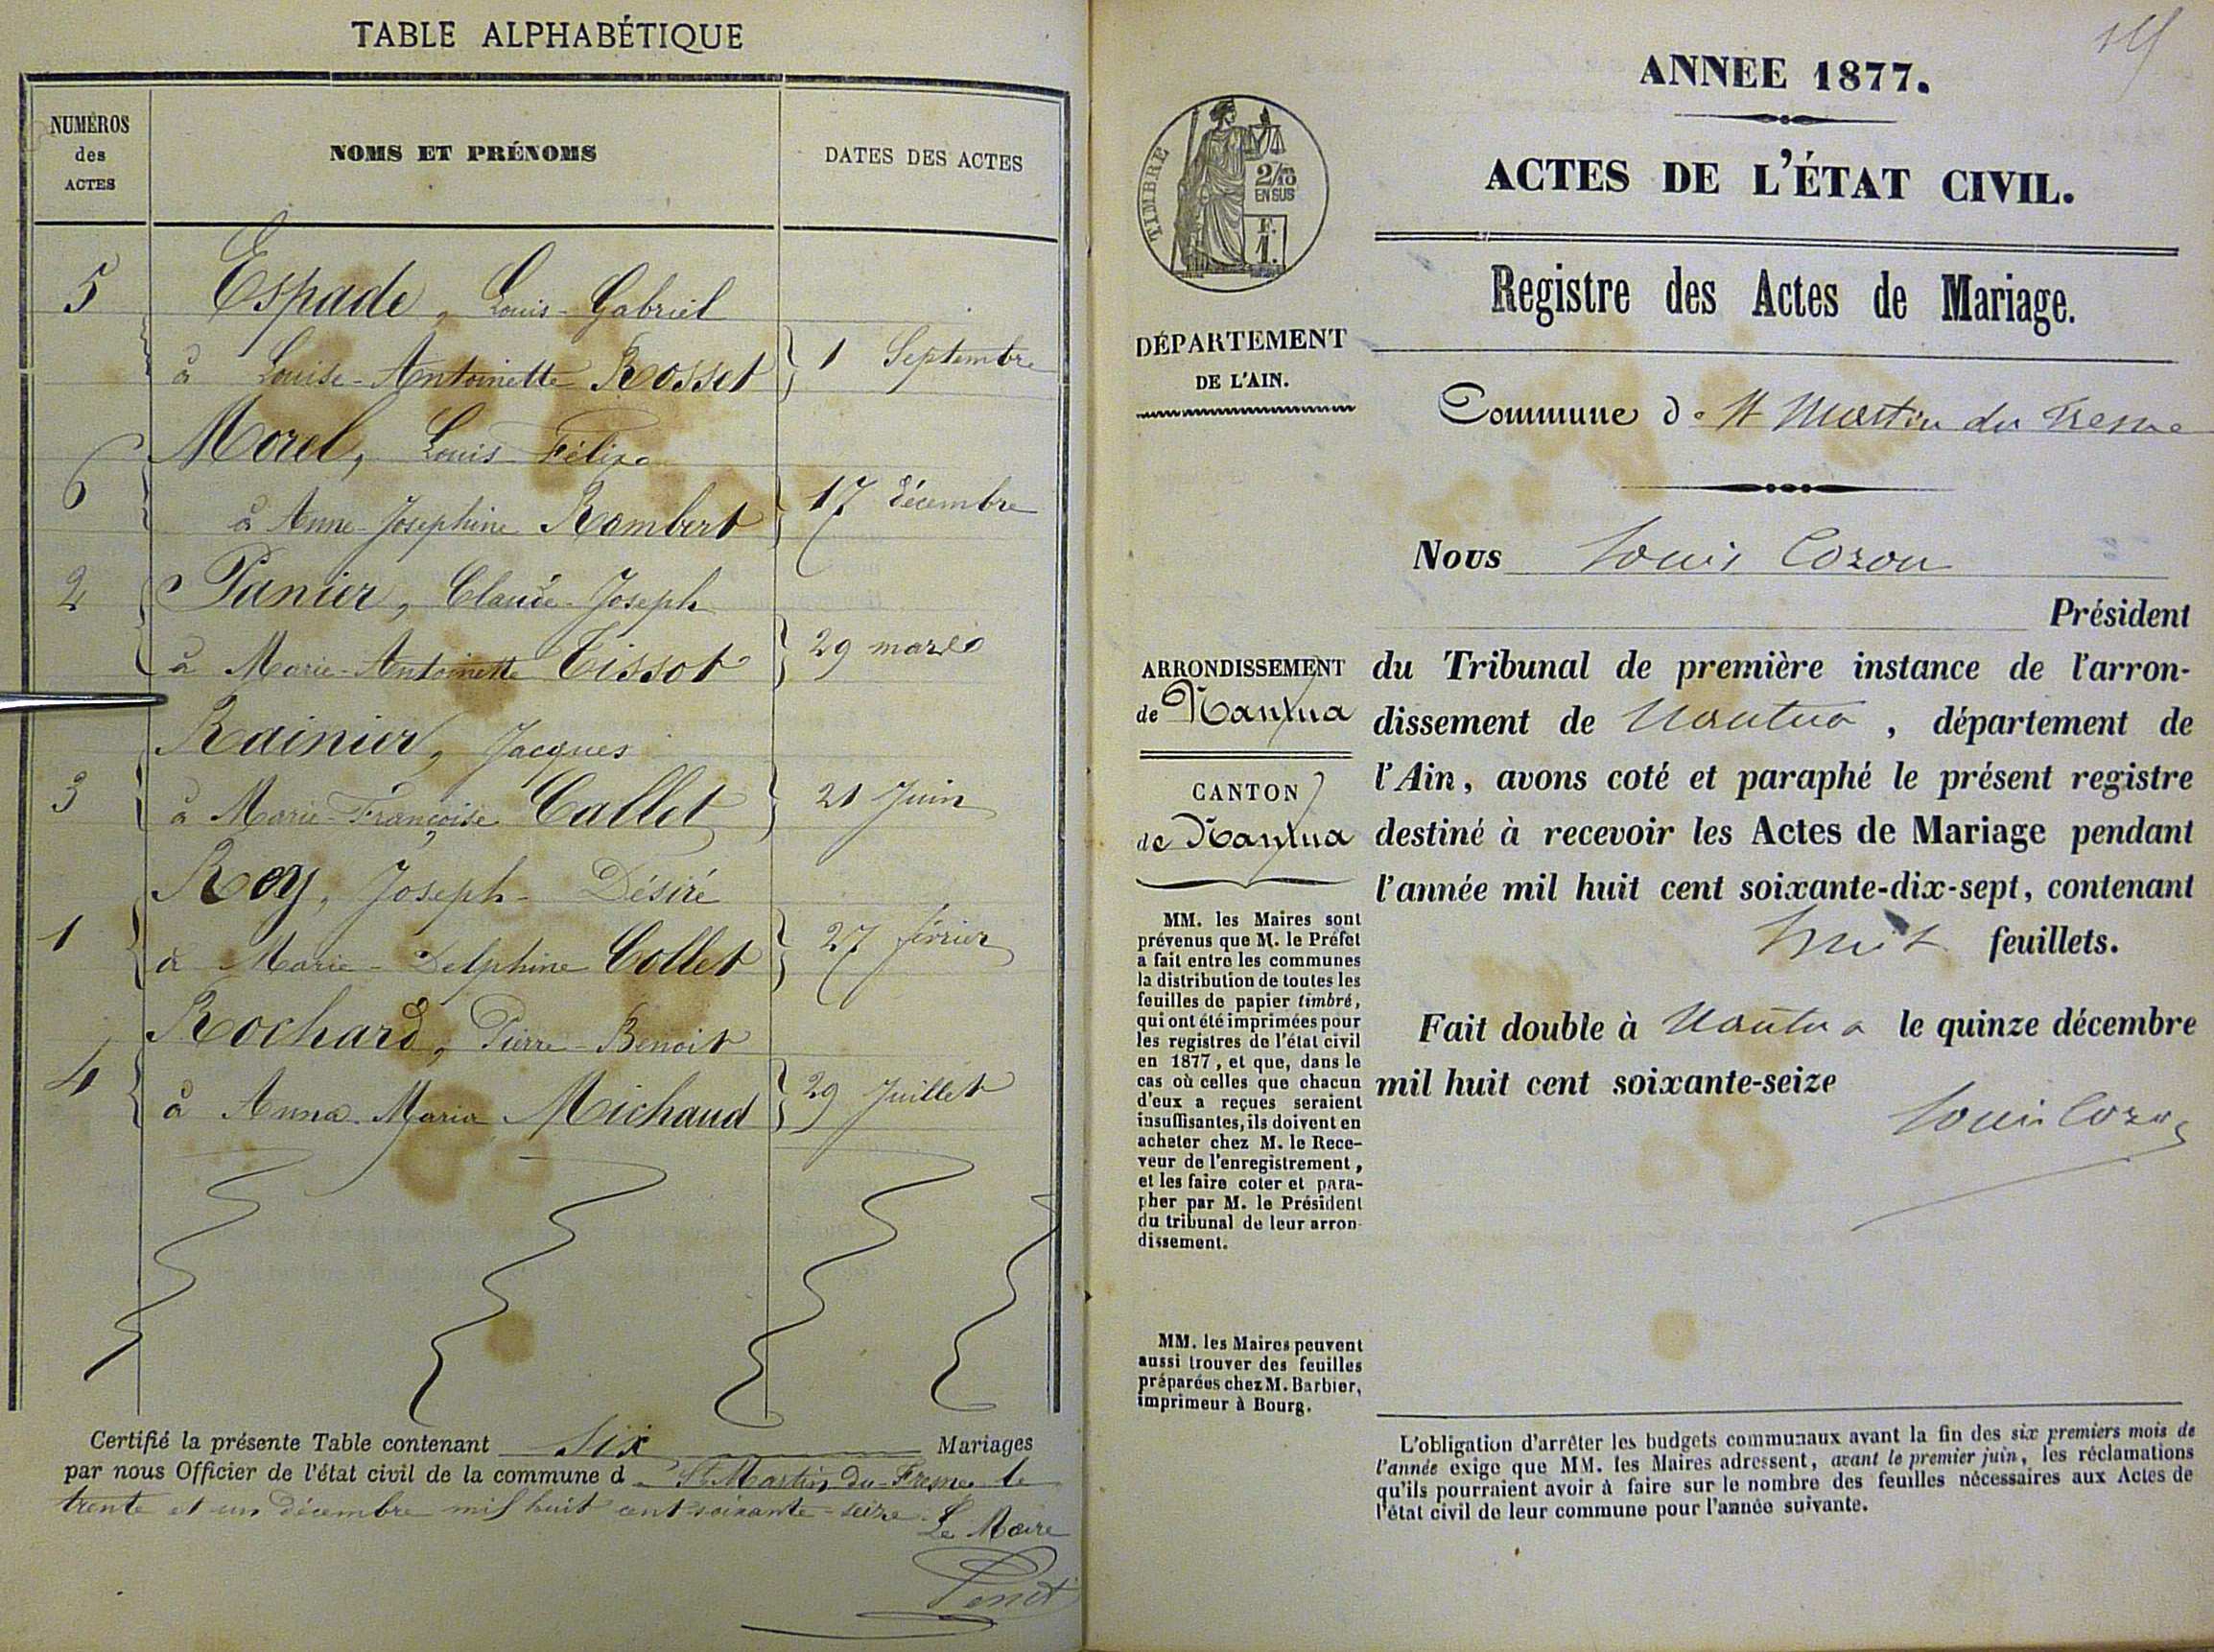 TABLE ALPHABÉTIQUE
NUMÉROS
des
ACTES
NOMS ET PRÉNOMS
DATES DES ACTES
5 Espade, Louis-Gabriel
à Louise-Antoinette Rosset 1 Septembre
Morel, Louis Félix
6 à Anne-Josephine Rambert 17 Décembre
2 Panier, Claude-Joseph
à Marie-Antoinette Tissot 29 mars
Rainier, Jacques
3 à Marie-Françoise Callet 21 Juin
Roy, Joseph-Désiré
1 à Marie-Delphine Collet 27 février
Rochard, Pierre-Benoit
4 à Anna-Maria Michaud 29 Juillet
Certifié la présente Table contenant six Mariages
par nous Officier de l'état civil de la commune d St Martin-du-Fresne le
trente et un décembre mil huit cent soixante-seize. Le Maire
ANNEE 1877.
ACTES DE L'ÉTAT CIVIL.
TIMBRE
2/10
EN SUS
F.
1.
Registre des Actes de Mariage.
DÉPARTEMENT
DE L'AIN.
Commune de St Martin du Fresne
Nous Louis Cozon
Président
ARRONDISSEMENT
de Nantua
CANTON
de Nantua
du Tribunal de première instance de l'arron-
dissement de Nantua, département de
l'Ain, avons coté et paraphé le présent registre
destiné à recevoir les Actes de Mariage pendant
l'année mil huit cent soixante-dix-sept, contenant
huit feuillets.
Fait double à Nantua le quinze décembre
mil huit cent soixante-seize
Louis Cozon
MM. les Maires sont
prévenus que M. le Préfet
a fait entre les communes
la distribution de toutes les
feuilles de papier timbré,
qui ont été imprimées pour
les registres de l'état civil
en 1877, et que, dans le
cas où celles que chacun
d'eux a reçues seraient
insuffisantes, ils doivent en
acheter chez M. le Rece-
veur de l'enregistrement,
et les faire coter et para-
pher par M. le Président
du tribunal de leur arron-
dissement.
MM. les Maires peuvent
aussi trouver des feuilles
préparées chez M. Barbier,
imprimeur à Bourg.
L'obligation d'arrêter les budgets communaux avant la fin des six premiers mois de
l'année exige que MM. les Maires adressent, avant le premier juin, les réclamations
qu'ils pourraient avoir à faire sur le nombre des feuilles nécessaires aux Actes de
l'état civil de leur commune pour l'année suivante.